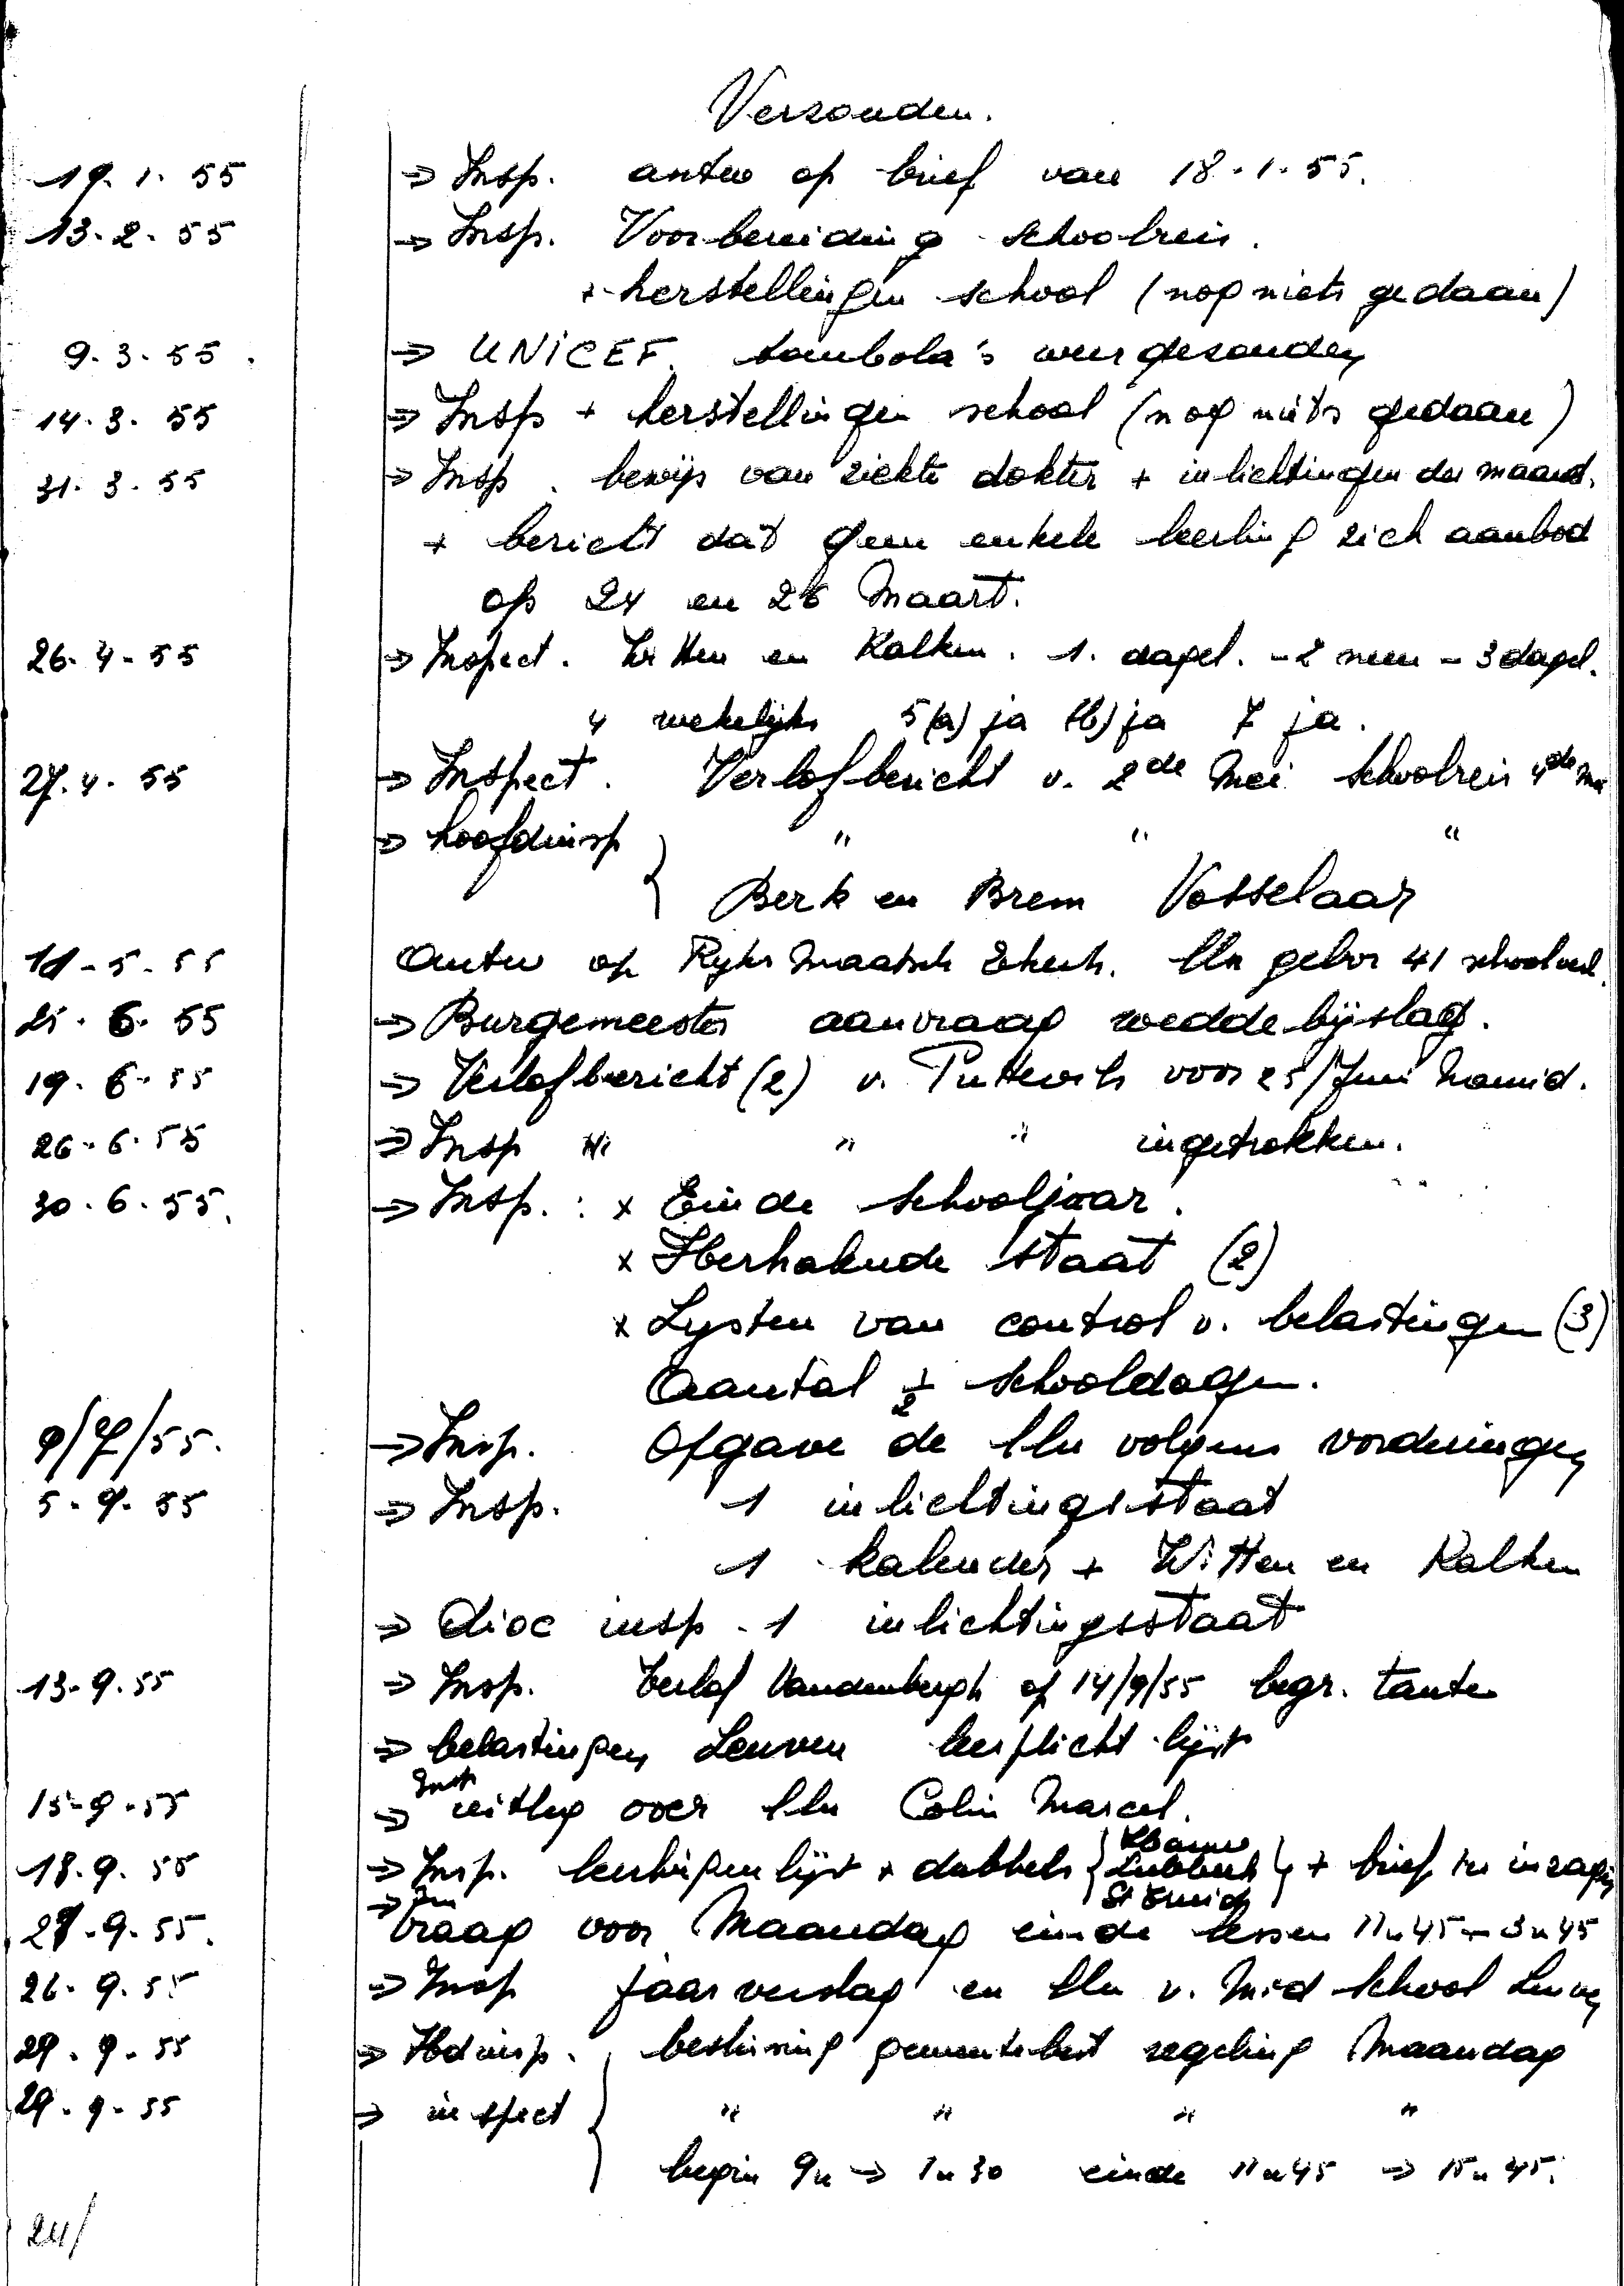 Verzonden.
19. 1. 55 => Insp. antw op brief van 18.1.55.
13.2.55 => Insp. Voorbereiding schoolreis.
+ herstellingen school (nog niets gedaan)
9.3.55. => UNICEF. tombola's weergezonden
14.3.55 => Insp + herstellingen school (nog niets gedaan)
31.3.55 => Insp. bewijs van ziekte dokter + inlichtingen der maand.
+ bericht dat geen enkele leerling zich aanbod
op 24 en 26 Maart.
26.4-55 => Inspect. Witten en Kalken. 1. dagel. -2 neen - 3 dagel.
4 wekelijks 5(a) ja (b) ja 7 ja.
27.4.55 => Inspect. Verlofbericht v. 2de Mei schoolreis 4de Mei
=> hoofdinsp " " "
} Berk en Brem Vosselaar
11-5-55 Antw op Ryks Maatsch. lln gebor 41 schoolverl.
25.6.55 => Burgemeester aanvraag weddebijslag.
19.6.55 => Verlofbericht (2) v. voor 25/Juni Namid.
26.6.55 => Insp " " " ingetrokken.
30.6.55. => Insp. : x Einde schooljaar.
x Herhalende staat (2)
x Lysten van control v. belastingen (3)
Aantal 1/2 schooldagen.
9/7/55. => Insp. Opgave de lln volgens vorderingen
5.9.55 => Insp. 1 inlichtingsstaat
1 kalender + Witten en Kalken
=> dioc insp. 1 inlichtingsstaat
13.9.55 => Insp. Verlof Vandenbergh op 14/9/55 begr. tante
=> belastingen Leuven leerplicht lijst
15-9-55 => Insp uitleg over lln Colin Marcel.
18.9.55 => Insp. leerlingenlijst + dubbels { Lubbeek } + brief ter inzage
27.9.55. => Vraag voor Maandag einde lessen 11u45 - 3u45
26.9.55 => Insp Jaarverslag en lln v. Mid School Leuven
29.9.55 => Hdinsp. beslissing regeling Maandag
29.9.55 => inspect } " " " "
begin 9u -> 1u30 einde 11u45 -> 15u45.
24/